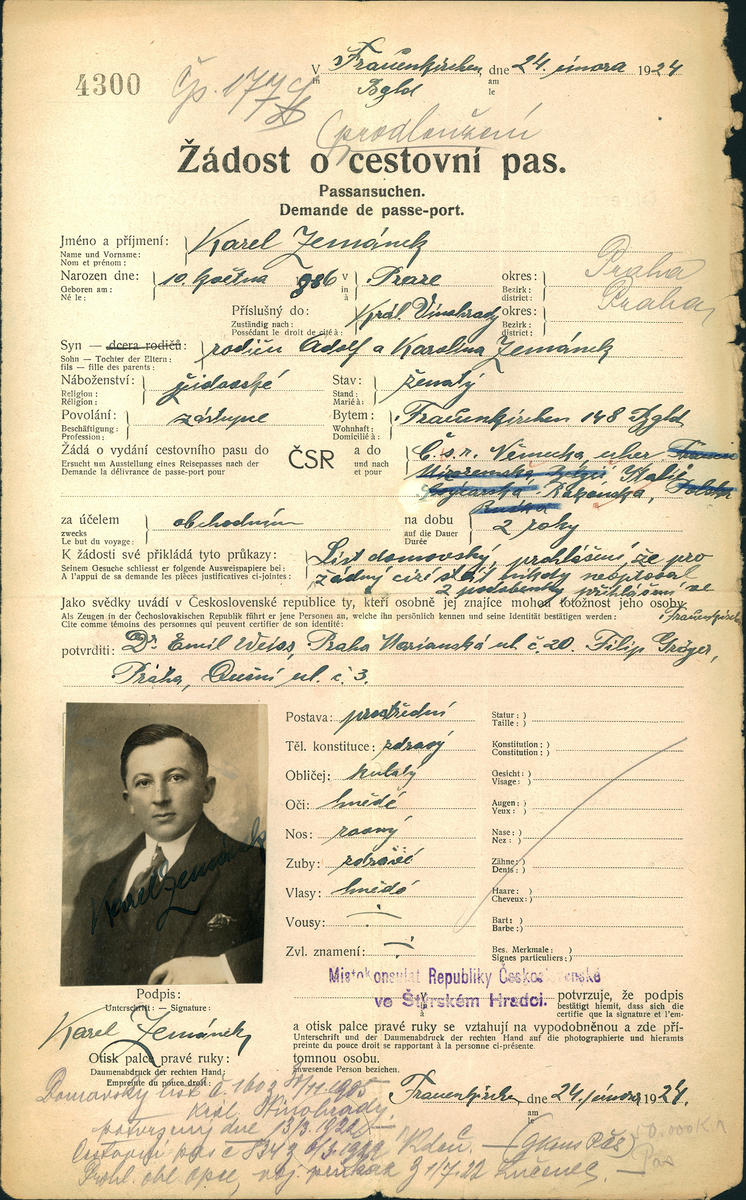 4300
Čp. 1774
V Frauenkirchen, dne 24. února 1924
in am
Bgld le
(prodloužení
Žádost o cestovní pas.
Passansuchen.
Demande de passe-port.
Jméno a příjmení: Karel Zemánek
Name und Vorname:
Nom et prénom:
Narozen dne: 10. května 886 v Praze okres: Praha
Geboren am: in Bezirk:
Né le: à district:
Příslušný do: Král Vinohrady okres: Praha
Zuständig nach: Bezirk:
Possédant le droit de cité à: district:
Syn — dcera rodičů: rodičů Adolf a Karolina Zemánek
Sohn — Tochter der Eltern:
fils — fille des parents:
Náboženství: židovské Stav: ženatý
Religion: Stand:
Réligion: Marié à:
Povolání: zástupce Bytem: Frauenkirchen 148 Bgld
Beschäftigung: Wohnhaft:
Profession: Domicilié à:
Žádá o vydání cestovního pasu do ČSR a do Č.s.r. Německa, uher.
Ersucht um Ausstellung eines Reisepasses nach der und nach
Demande la délivrance de passe-port pour et pour
Italie
Švýcarska Rakouska, Polska
za účelem obchodním na dobu 2 roky
zwecks auf die Dauer
Le but du voyage: Durée
K žádosti své přikládá tyto průkazy: List domovský, prohlášení, že pro
Seinem Gesuche schliesst er folgende Ausweispapiere bei:
A l'appui de sa demande les pièces justificatives ci-jointes:
žádný cizí stát nikdy neoptoval
2 podobenky přihlášení ve
Frauenkirchen
Jako svědky uvádí v Československé republice ty, kteří osobně jej znajíce mohou totožnost jeho osoby
Als Zeugen in der Čechoslovakischen Republik führt er jene Personen an, welche ihn persönlich kennen und seine Identität bestätigen werden:
Cite comme témoins des personnes qui peuvent certifier de son identité:
potvrditi: Dr Emil Weiss, Praha Marianská ul. č. 20. Filip Gröger,
Praha, Dušní ul. č. 3.
Postava: prostřední Statur:
Taille:
Těl. konstituce: zdravý Konstitution:
Constitution:
Obličej: kulatý Gesicht:
Visage:
Oči: hnědé Augen:
Yeux:
Nos: rovný Nase:
Nez:
Zuby: zdravé Zähne:
Dents:
Vlasy: hnědé Haare:
Cheveux:
Vousy: Bart:
Barbe:
Zvl. znamení: Bes. Merkmale:
Signes particuliers:
Karel Zemánek
Místokonsulát Republiky Československé
ve Štýrském Hradci.
Podpis:
Unterschrift: — Signature:
Karel Zemánek
potvrzuje, že podpis
bestätigt hiemit, dass sich die
certifie que la signature et l'em-
a otisk palce pravé ruky se vztahují na vypodobněnou a zde pří-
Unterschrift und der Daumenabdruck der rechten Hand auf die photographierte und hieramts
preinte du pouce droit se rapportent à la personne ci-présente.
tomnou osobu.
anwesende Person beziehen.
Otisk palce pravé ruky:
Daumenabdruck der rechten Hand:
Empreinte du pouce droit:
Frauenkirchen dne 24. února 1924.
am
le
Domovský list č. 1603
Král. Vinohrady
potvrzený dne 13/3 1922
Cestovní pas č 834